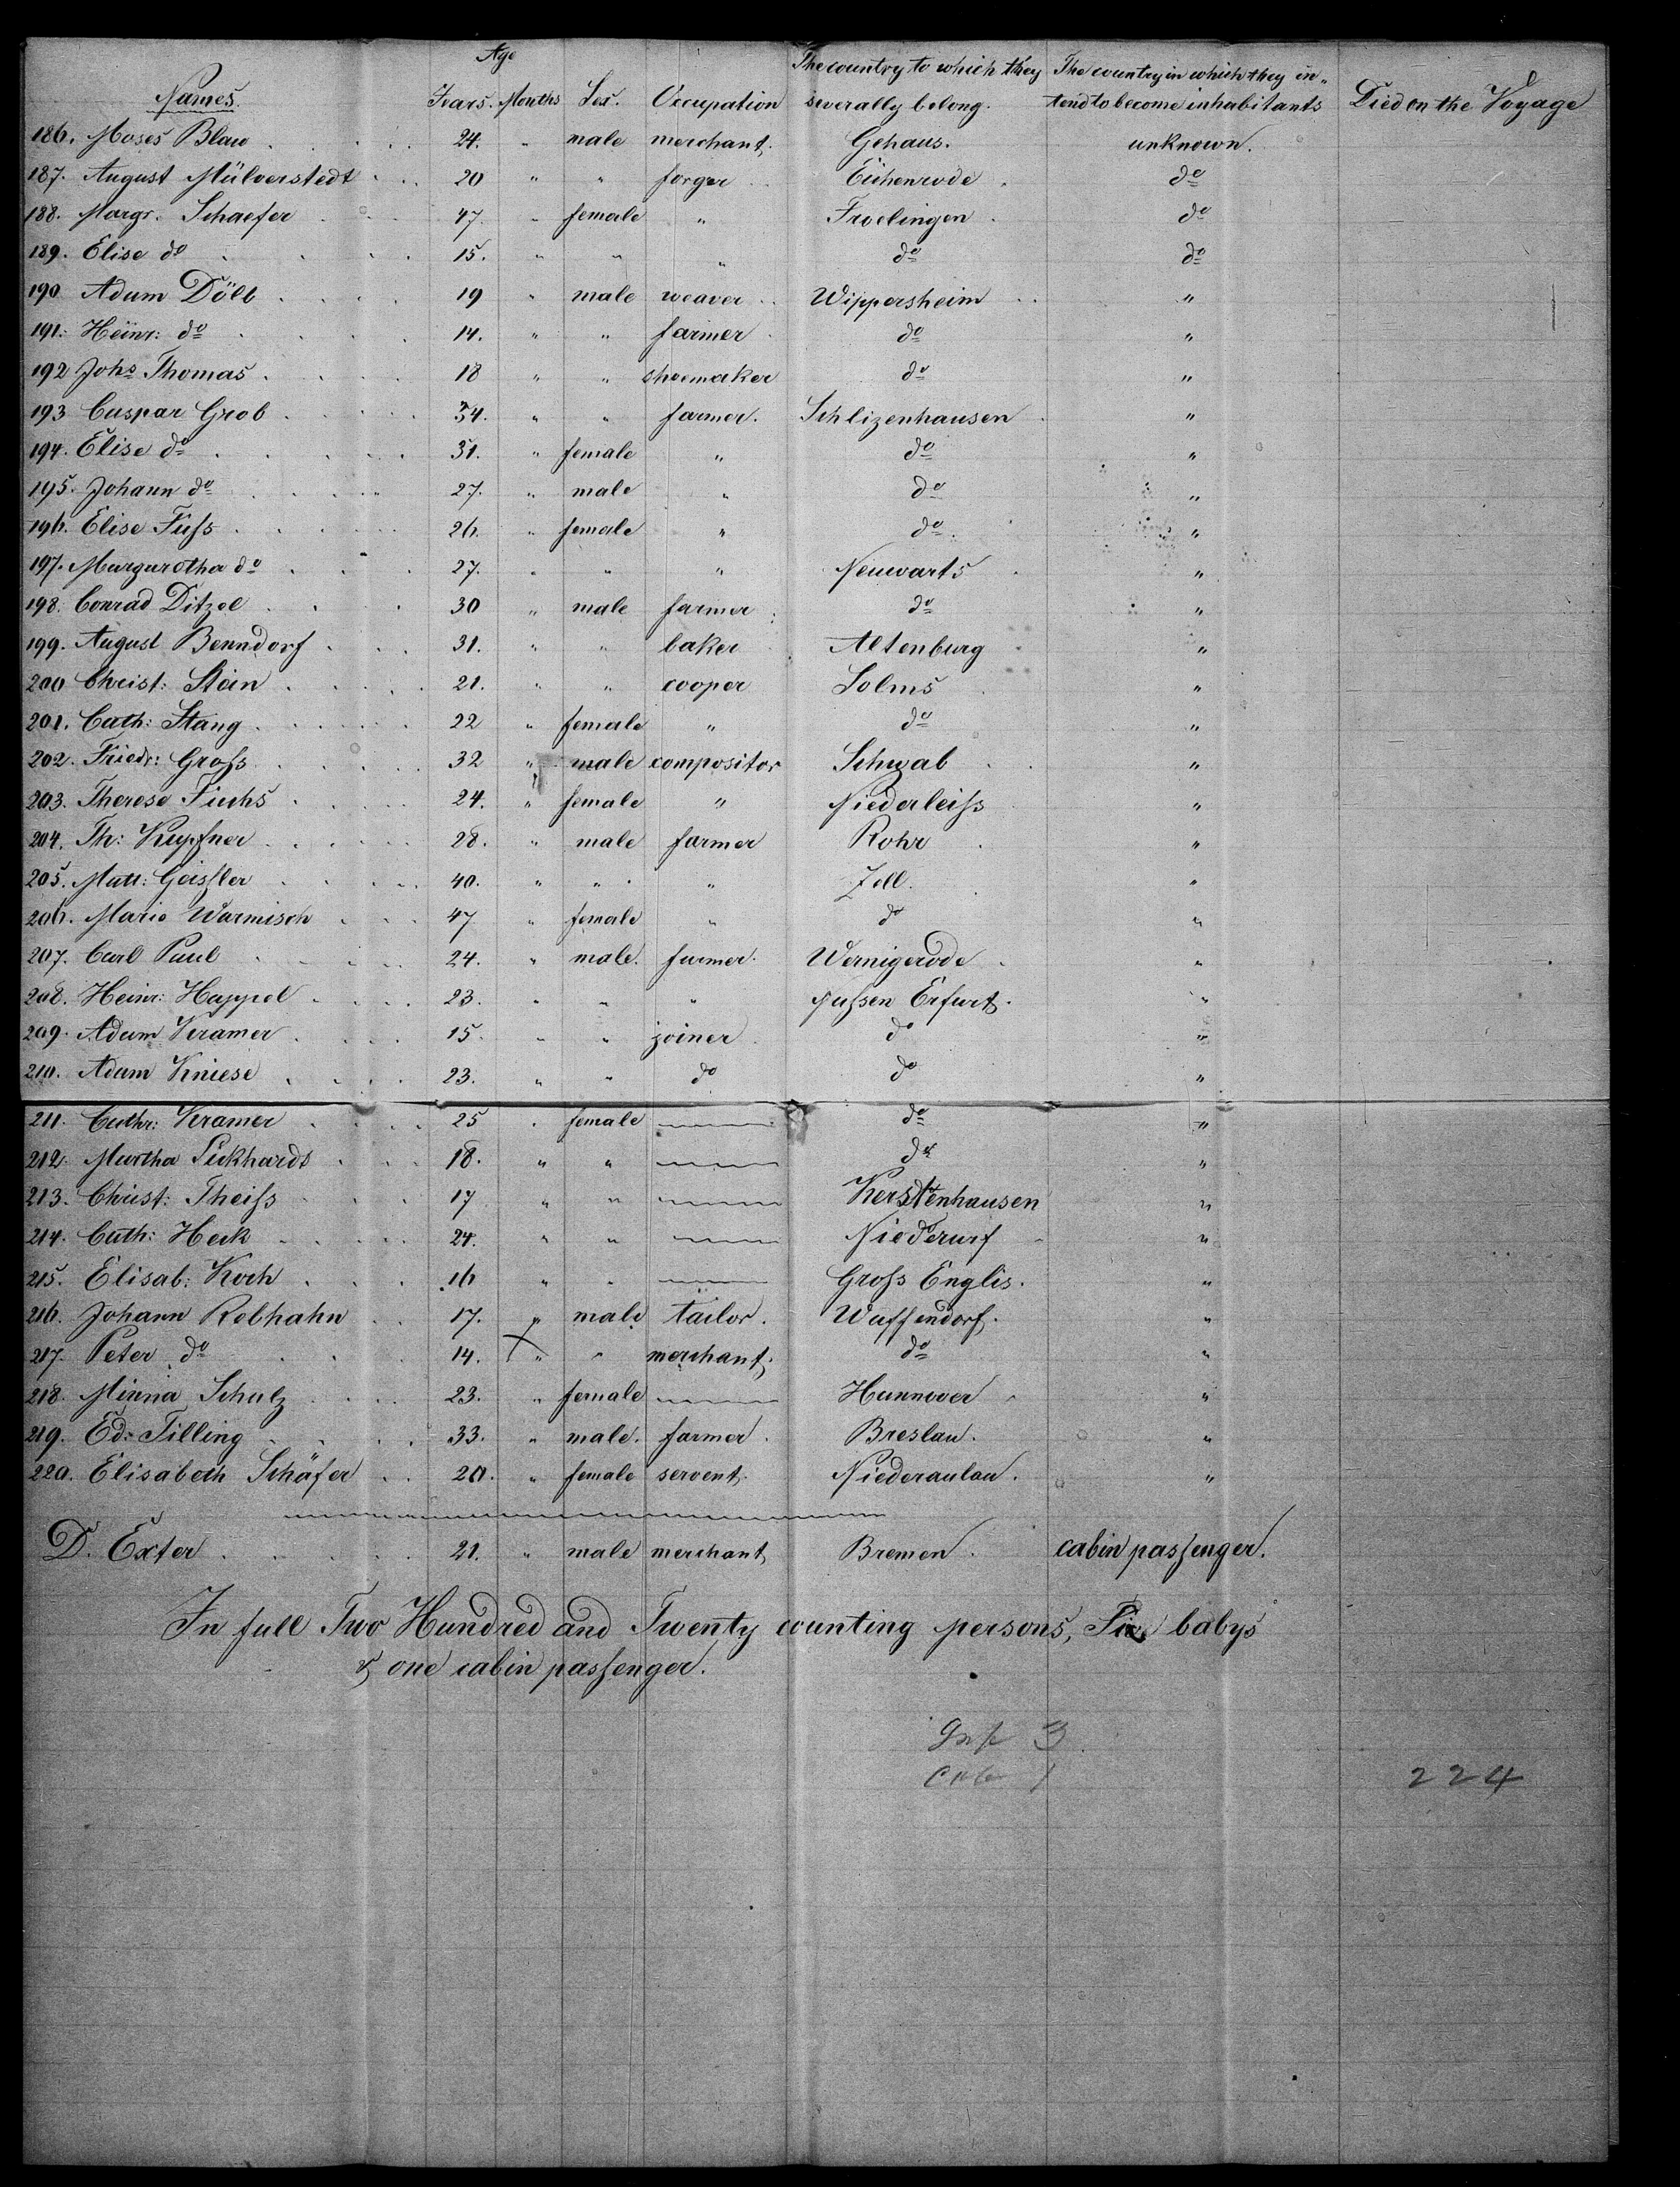 Age
The country to which they The country in which they in-
Names. Years. Months Sex. Occupation severally belong. tend to become inhabitants Died on the Voyage
186. Moses Blau 24. " male merchant. Gehaus. unknown.
187. August Mülverstedt 20 " " forger Eichenrode do
188. Margr. Schaefer 47. " female " Froelingen do
189. Elise do 15. " " " do do
190 Adam Dölb 19 " male weaver Wippersheim "
191. Heinr: do 14. " " farmer do "
192 Johs Thomas 18 " " shoemaker do "
193 Caspar Grob 34. " " farmer. Schlizenhausen "
194. Elise do 31. " female " do "
195. Johann do 27. " male " do "
196. Elise Fuss 26. " female " do "
197. Margaretha do 27. " " " Neuwarts "
198. Conrad Ditzel 30 " male farmer do "
199. August Benndorf 31. " " baker Altenburg "
200 Christ: Stein 21. " " cooper Solms "
201. Cath: Stang 22 " female " do "
202. Friedr: Gross 32 " male compositor Schwab "
203. Therese Fuchs 24. " female " Niederleiss "
204. Th: Kupfner 28. " male farmer Rohr "
205. Matt: Geissler 40. " " " Zell. "
206. Marie Warmisch 47 " female " do "
207. Carl Paul 24. " male. farmer. Wernigerode "
208. Heinr: Happel 23. " " " Erfurt. "
209. Adam Kramer 15. " " joiner do "
210. Adam Kniese 23. " " do do "
211. Cathr: Kramer 25 " female do "
212. Martha Sickhardt 18. " " do "
213. Christ: Theiss 17 " " Kerstenhausen "
214. Cath: Heck 24. " " Niederurf "
215. Elisab: Koch 16 " " Gross Englis. "
216. Johann Rebhahn 17. " male tailor. Waffendorf. "
217. Peter do 14. " " merchant. do "
218. Minna Schulz 23. " female Hannover "
219. Ed: Tilling 33. " male. farmer. Breslau. "
220. Elisabeth Schäfer 20. " female servent. Niederaulau. "
D. Exter 21. " male merchant Bremen. cabin passenger.
In full Two Hundred and Twenty counting persons, babys
& one cabin passenger.
Inf 3
Cab 1 224